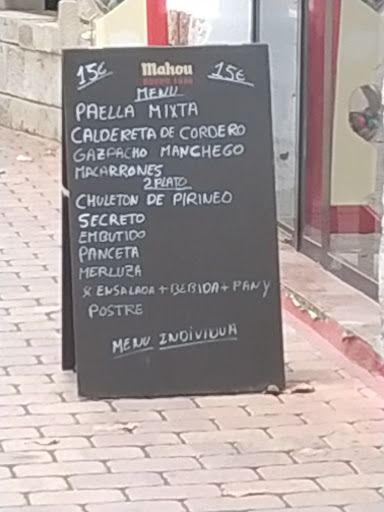 15€ Mahou 15€
DESDE 1890
MENU
PAELLA MIXTA
CALDERETA DE CORDERO
GAZPACHO MANCHEGO
MACARRONES
2 PLATO
CHULETON DE PIRINEO
SECRETO
EMBUTIDO
PANCETA
MERLUZA
X ENSALADA + BEBIDA + PAN Y
POSTRE
MENU INDIVIDUA